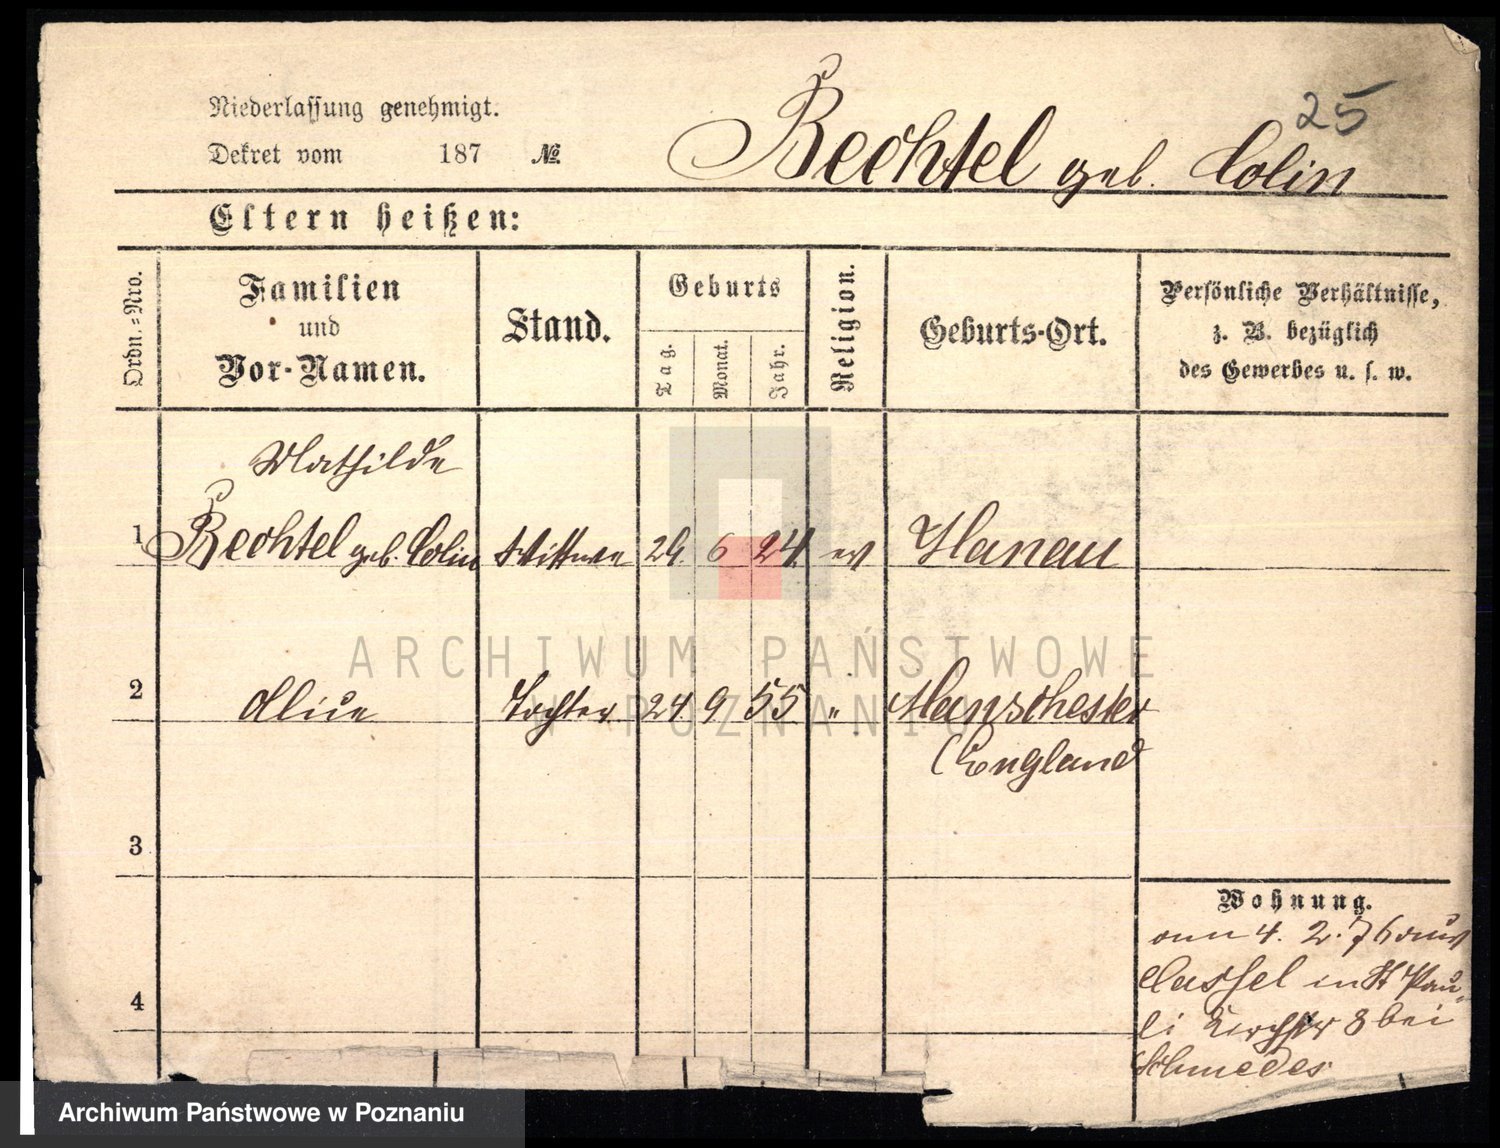 Niederlassung genehmigt.
Dekret vom 187 №
Bechtel geb. Colin
25
Eltern heißen:
Ordn.-Nro.
Familien
und
Vor-Namen.
Stand.
Geburts
Tag.
Monat.
Jahr.
Religion.
Geburts-Ort.
Persönliche Verhältnisse,
z. B. bezüglich
des Gewerbes u. s. w.
Mathilde
1 Bechtel geb. Colin Wittwe 24. 6 24 ev Hanau
2 Alice Tochter 24. 9 55 " Manschester
(England
3
4
Wohnung.
am 4. 2. 76 aus
Cassel in St Pau-
li Kirchstr 8 bei
Schmedes
ARCHIWUM PAŃSTWOWE
W POZNANIU
Archiwum Państwowe w Poznaniu